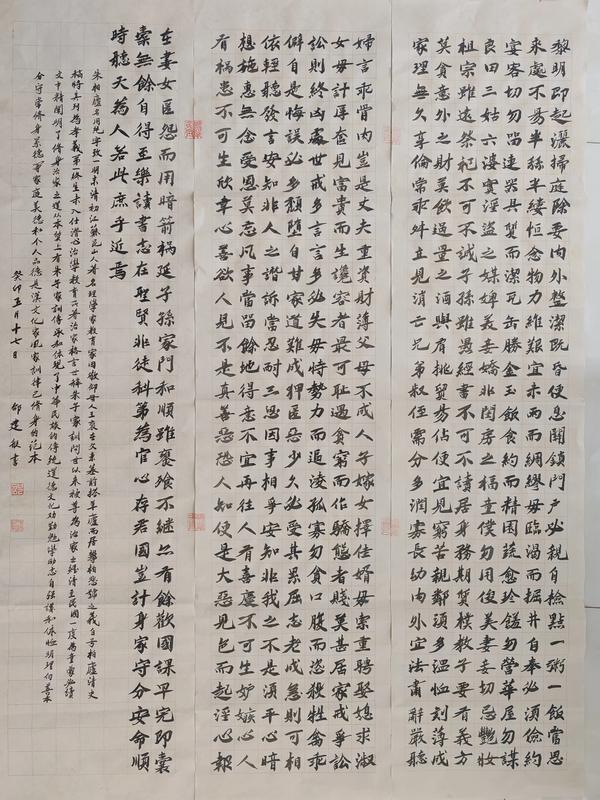 黎明即起灑掃庭除要內外整潔既昏便息關鎖門戶必親自檢點一粥一飯當思
來處不易半絲半縷恒念物力維艱宜未雨而綢繆毋臨渴而掘井自奉必須儉約
宴客切勿留連器具質而潔瓦缶勝金玉飯食約而精園蔬愈珍饈勿營華屋勿謀
良田三姑六婆實淫盜之媒婢美妾嬌非閨房之福童僕勿用俊美妻妾切忌艷妝
祖宗雖遠祭祀不可不誠子孫雖愚經書不可不讀居身務期質樸教子要有義方
莫貪意外之財莫飲過量之酒與肩挑貿易佔便宜見窮苦親鄰須多溫恤刻薄成
家理無久享倫常乖舛立見消亡兄弟叔侄需分多潤寡長幼內外宜法肅辭嚴聽
婦言乖骨肉豈是丈夫重資財薄父母不成人子嫁女擇佳婿毋索重聘娶媳求淑
女毋計厚奩見富貴而生讒容者最可恥遇貧窮而作驕態者賤莫甚居家戒爭訟
訟則終凶處世戒多言言多必失毋恃勢力而凌孤寡勿貪口腹而恣牲禽乖
僻自是悔誤必多頹墮自甘家道難成狎匿惡少久必受其累屈志老成急則可相
依輕聽發言安知非人之譖訴當忍耐三思因事相爭安知非我之不是須平心暗
想施惠無念受恩莫忘凡事當留餘地得意不宜再往人有喜慶不可生妒嫉心人
有禍患不可生欣幸心善欲人見不是真善惡恐人知便是大惡見色而起淫心報
在妻女匿怨而用暗箭禍延子孫家門和順雖饔飧不繼亦有餘歡國課早完即囊
橐無餘自得至樂讀書志在聖賢非徒科第為官心存君國豈計身家守分安命順
時聽天為人若此庶乎近焉
朱柏廬名用純字致一明末清初江蘇昆山人著名理學家教育家因敬仰人王裒在父亲墓前搭草廬而居攀柏悲號之義自号柏廬清史
稿將其列為孝義第一終生未入仕潛心治學教育著治家格言亦稱朱子家訓問世以來被尊為治家之經清至民國一度為童蒙必讀
文中精闡明了修身治家之道從本質上看朱子家訓傳承和体現了中華民族的傳統道德文化勤勉學励志自強謙和明理向善本
分守常修身养德等家庭美德和个人品德是漢文化家風家訓律己修身的范本
癸卯五月十七日 邵建敏書